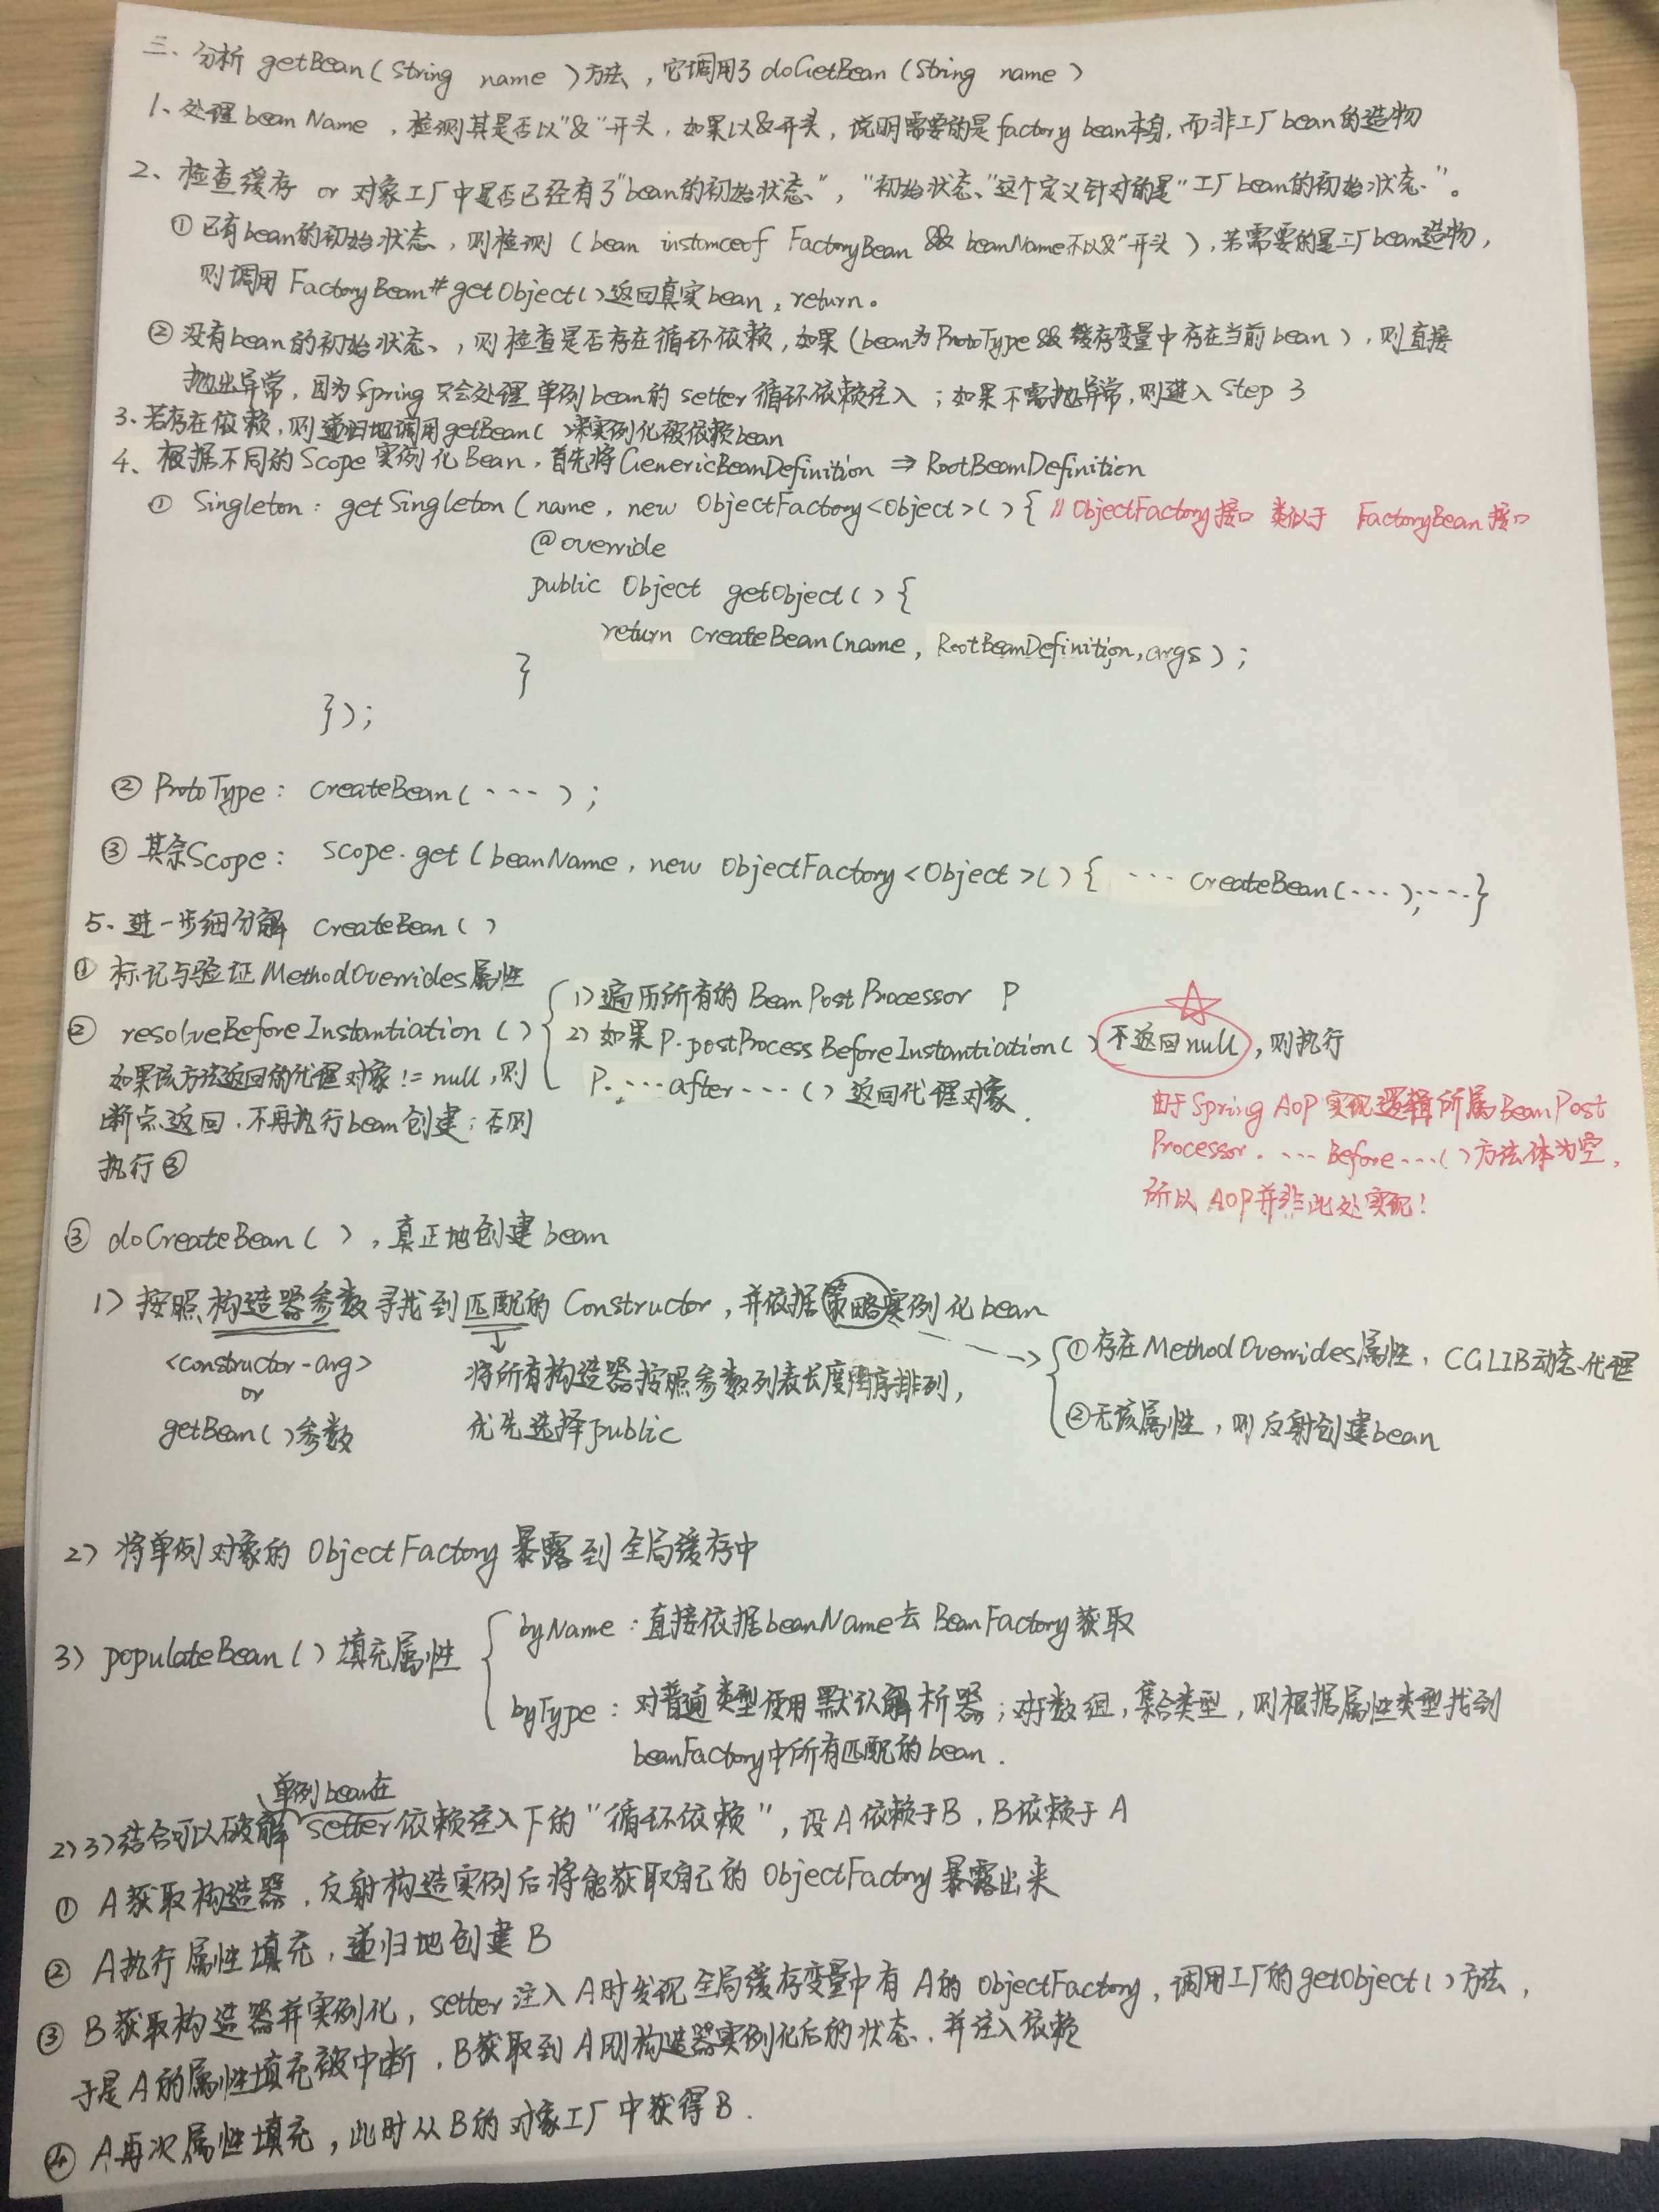 三、分析 getBean(String name)方法，它调用了doGetBean(String name)
1、处理beanName，检测其是否以"&"开头，如果以&开头，说明需要的是factory bean本身，而非工厂bean的造物
2、检查缓存 or 对象工厂中是否已经有了"bean的初始状态"，"初始状态"这个定义针对的是"工厂bean的初始状态"。
① 已有bean的初始状态，则检测(bean instanceof FactoryBean && beanName不以&"开头)，若需要的是工厂bean造物，
则调用FactoryBean#getObject()返回真实bean，return。
② 没有bean的初始状态，则检查是否存在循环依赖，如果(bean为ProtoType && 缓存变量中存在当前bean)，则直接
抛出异常，因为Spring只会处理单例bean的setter循环依赖注入；如果不需抛异常，则进入Step 3
3、若存在依赖，则递归地调用getBean()来实例化被依赖bean
4、根据不同的Scope实例化Bean，首先将GenericBeanDefinition ⇒ RootBeanDefinition
① Singleton: getSingleton(name, new ObjectFactory<Object>(){ // ObjectFactory接口 类似于 FactoryBean接口
@override
public Object getObject(){
return createBean(name, RootBeanDefinition, args);
}
});
② ProtoType: createBean(···);
③ 其余Scope: scope.get(beanName, new ObjectFactory<Object>(){ ··· createBean(···);···}
5、进一步细分解 createBean()
① 标记与验证MethodOverrides属性
② resolveBeforeInstantiation()
如果该方法返回的代理对象 != null，则
断点返回，不再执行bean创建；否则
执行③
1) 遍历所有的BeanPostProcessor P
2) 如果P.postProcessBeforeInstantiation()不返回null，则执行
P.···after···()返回代理对象.
由于Spring AOP实现逻辑所属BeanPost
Processor.···Before···()方法体为空，
所以AOP并非此处实现!
③ doCreateBean()，真正地创建bean
1) 按照构造器参数寻找到匹配的Constructor，并依据策略实例化bean
<constructor-arg>
or
getBean()参数
将所有构造器按照参数列表长度降序排列，
优先选择public
① 存在MethodOverrides属性，CGLIB动态代理
② 无该属性，则反射创建bean
2) 将单例对象的ObjectFactory暴露到全局缓存中
3) populateBean()填充属性
byName：直接依据beanName去BeanFactory获取
byType：对普通类型使用默认解析器；对于数组，集合类型，则根据属性类型找到
beanFactory中所有匹配的bean.
单例bean在
2)3)结合可以破解setter依赖注入下的"循环依赖"，设A依赖于B，B依赖于A
① A获取构造器，反射构造实例后将能获取自己的ObjectFactory暴露出来
② A执行属性填充，递归地创建B
③ B获取构造器并实例化，setter注入A时发现全局缓存变量中有A的ObjectFactory，调用工厂的getObject()方法，
于是A的属性填充被中断，B获取到A刚构造器实例化后的状态，并注入依赖
④ A再次属性填充，此时从B的对象工厂中获得B.